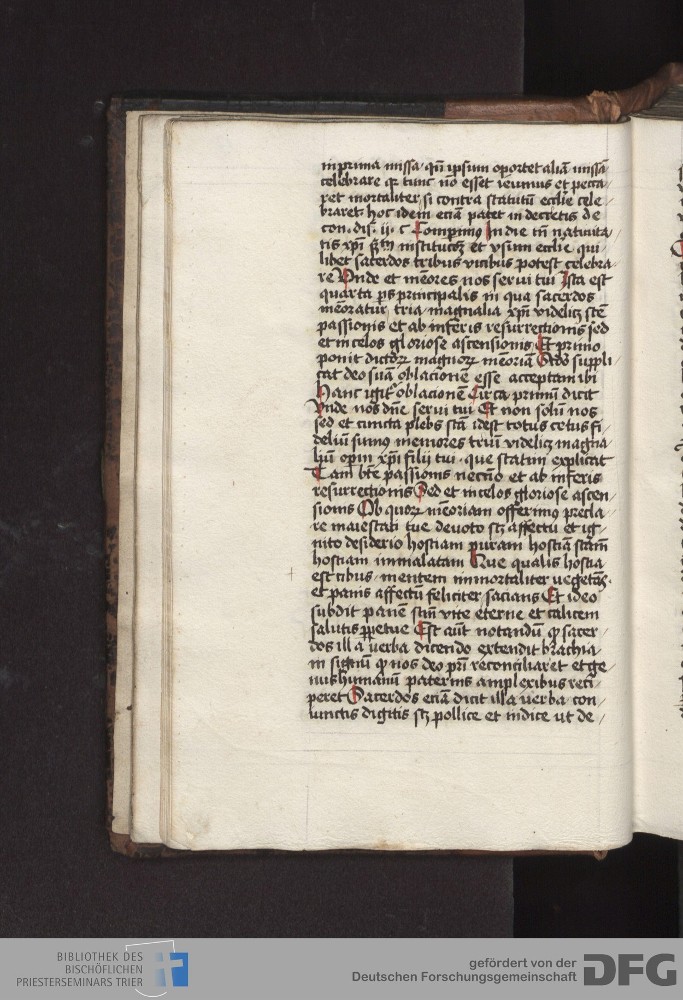 in prima missa · qn̄ ipsum oportet aliā missā
celebrare qr tunc nō esset ieiunus et pecca/
ret mortaliter si contra statutū ecclīe cele/
braret · hoc idem eciā patet in decretis de
con · dis · ii · c Compimus In die tn̄ natiuita/
tis xp̄i scd̄m institucōꝫ et vsum ecclīe qui/
libet sacerdos tribus vicibus potest celebra/
re Vnde et mēores nos serui tui Ista est
quarta ps principalis in qua sacerdos
mēoratur tria magnalia xp̄i videlicꝫ scē
passionis et ab inferis resurrectionis sed
et in celos gloriose ascensionis Et primo
ponit dictoꝝ magnoꝝ mēoriā Scd̄o suppli/
cat deo suā oblacionē esse acceptam ibi
Hanc igit᷑ oblacionē Circa primū dicit
Vnde nos dn̄e serui tui Et non solū nos
sed et cuncta plebs stā idest totus cetus fi/
deliū sumꝰ memores triū videlicꝫ magna/
liū xp̄i filii tui · que statim explicat
Tam btē passionis necnō et ab inferis
resurrectionis Sed et in celos gloriose ascen/
sionis Ob quoꝝ mēoriam offerimꝰ precla/
re maiestati tue deuoto scꝫ affectu et ig/
nito desiderio hostiam puram hostiā stām
hostiam immaculatam Que qualis hostia
est cibus · mentem immortaliter vegetās ·
et panis affectū feliciter sacians Et ideo
subdit panē stm̄ vite eterne et calicem
salutis ꝑpetue Est aūt notandū ꝙ sacer/
dos illa verba dicendo extendit brachia/
in signū ꝙ nos deo pr̄i reconciliaret et ge/
nus humanū paternis amplexibus reci/
peret Sacerdos eciā dicit illa verba con/
iunctis digitis scꝫ pollice et indice ut de/
BIBLIOTHEK DES
BISCHÖFLICHEN
PRIESTERSEMINARS TRIER
gefördert von der
Deutschen Forschungsgemeinschaft
DFG